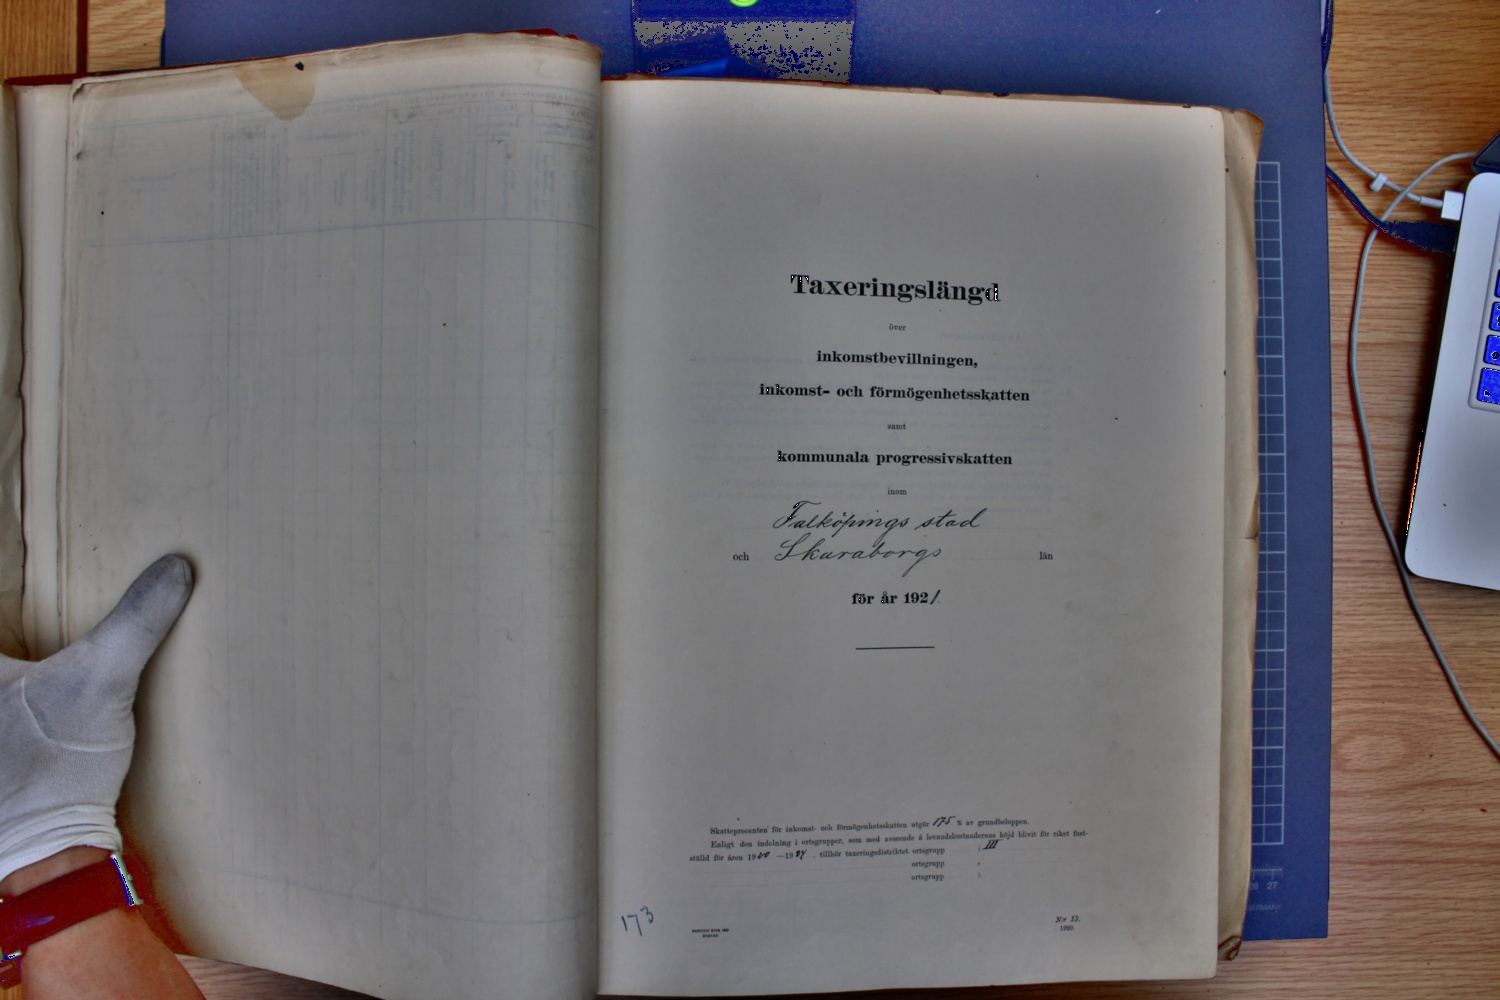 Taxeringslängd
över
inkomstbevillningen,
inkomst- och förmögenhetsskatten
samt
kommunala progressivskatten
inom
Falköpings stad
och Skaraborgs län
för år 1921
Skatteprocenten för inkomst- och förmögenhetsskatten utgör 175 % av grundbeloppen.
Enligt den indelning i ortsgrupper, som med avseende å levnadskostnadernas höjd blivit för riket fast-
ställd för åren 1920—1924, tillhör taxeringsdistriktet ortsgrupp III
ortsgrupp
ortsgrupp
173
N:r 13.
1920.
26 27